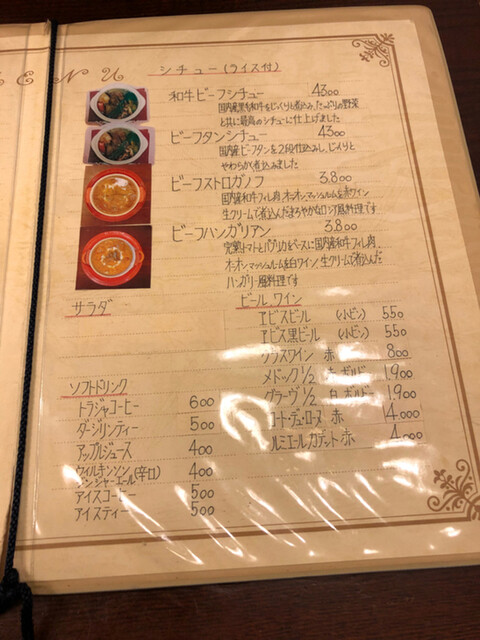 MENU
シチュー(ライス付)
和牛ビーフシチュー 4300
国内産黒毛和牛をじっくりと煮込み、たっぷりの野菜
と共に最高のシチューに仕上げました
ビーフタンシチュー 4300
国内産ビーフタンを2段仕込みし、じっくりと
やわらかく煮込みました
ビーフストロガノフ 3.800
国内産和牛フィレ肉、オニオン、マッシュルームを赤ワイン
生クリームで煮込んだまろやかなロシア風料理です
ビーフハンガリアン 3.800
完熟トマトとパプリカをベースに国内産和牛フィレ肉、
オニオン、マッシュルームを白ワイン、生クリームで煮込んだ
ハンガリー風料理です
サラダ
ビール、ワイン
ヱビスビール (小ビン) 550
ヱビス黒ビール (小ビン) 550
グラスワイン 赤 800
メドック1/2 赤 ボルドー 1.900
グラーヴ1/2 白 ボルドー 1.900
コート・デュ・ローヌ 赤 4.000
ルミエール,カデット 赤 4.000
ソフトドリンク
トラジャコーヒー 600
ダージリンティー 500
アップルジュース 400
ウィルキンソン(辛口)
ジンジャーエール 400
アイスコーヒー 500
アイスティー 500